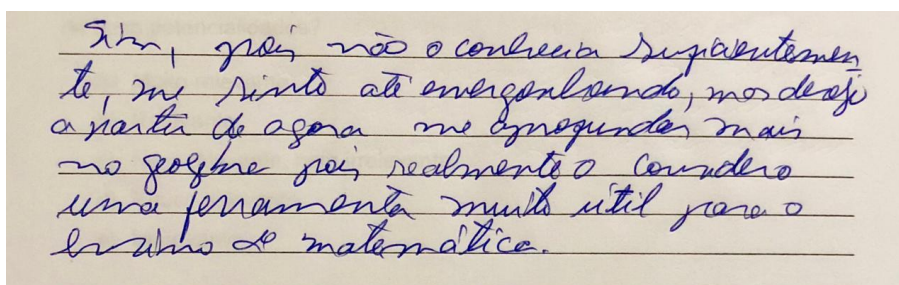 Sim, pois não o conhecia suficientemen
te, me sinto até envergonhando, mas desejo
a partir de agora me aprofundar mais
no geogebra pois realmente o considero
uma ferramenta muito útil para o
ensino de matemática.